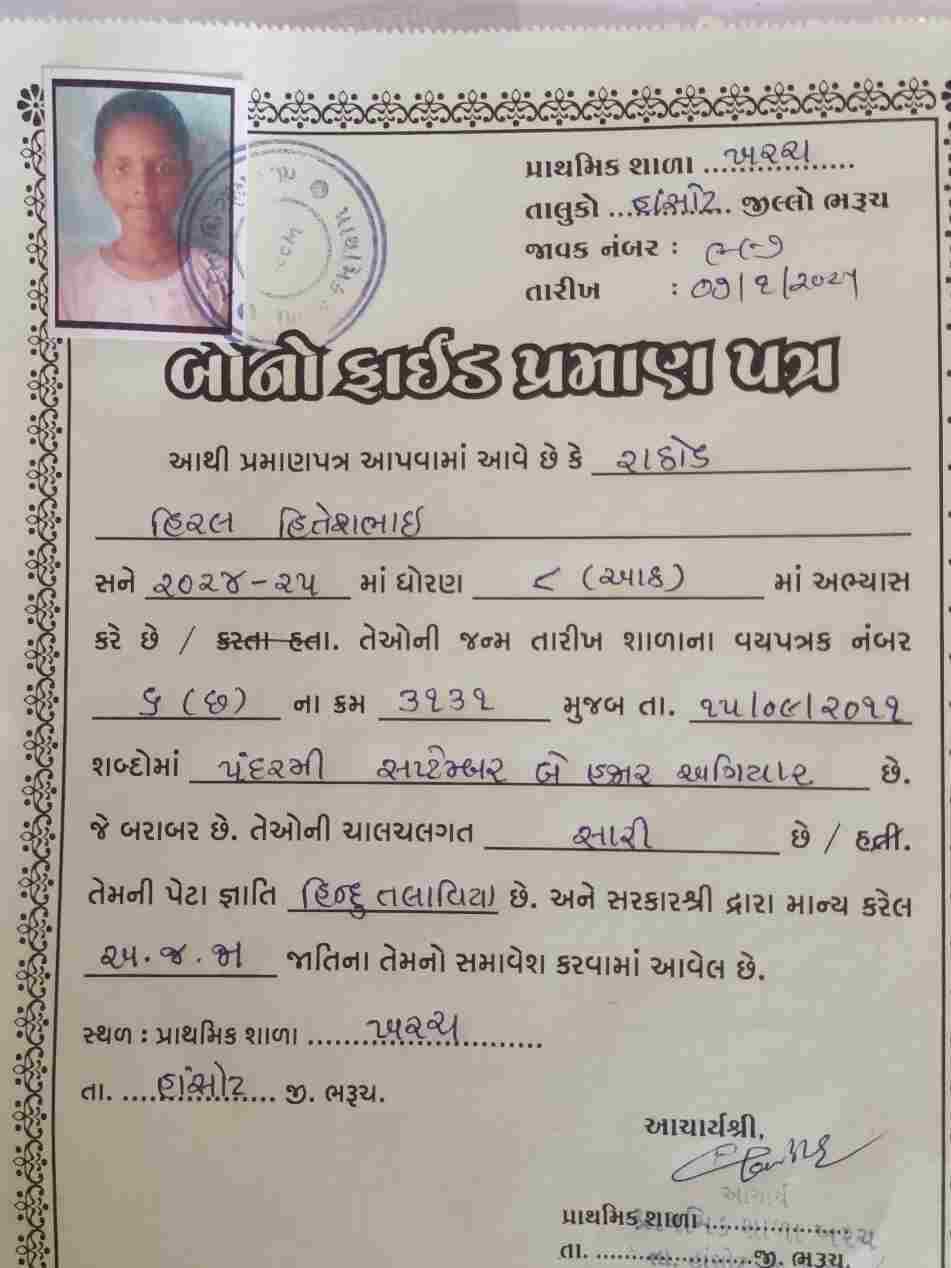 પ્રાથમિક શાળા ...ખરચ...
તાલુકો ...હાંસોટ... જીલ્લો ભરૂચ
જાવક નંબર :
તારીખ : ૦૭/૧/૨૦૨૫
પ્રાથમિક
બોનોફાઈડ પ્રમાણ પત્ર
આથી પ્રમાણપત્ર આપવામાં આવે છે કે રાઠોડ
હિરલ હિતેશભાઇ
સને ૨૦૨૪-૨૫ માં ધોરણ ૮ (આઠ) માં અભ્યાસ
કરે છે / કરતા હતા. તેઓની જન્મ તારીખ શાળાના વયપત્રક નંબર
૬ (છ) ના ક્રમ ૩૧૩૧ મુજબ તા. ૧૫/૦૯/૨૦૧૧
શબ્દોમાં પંદરમી સપ્ટેમ્બર બે હજાર અગિયાર છે.
જે બરાબર છે. તેઓની ચાલચલગત સારી છે / હતી.
તેમની પેટા જ્ઞાતિ હિન્દુ તલાવિયા છે. અને સરકારશ્રી દ્વારા માન્ય કરેલ
અ.જ.જા જાતિના તેમનો સમાવેશ કરવામાં આવેલ છે.
સ્થળ : પ્રાથમિક શાળા ...ખરચ...
તા. ...હાંસોટ... જી. ભરૂચ.
આચાર્યશ્રી,
આચાર્ય
પ્રાથમિક શાળા ...
પ્રાથમિક શાળા ખરચ
તા. ... જી. ભરૂચ.